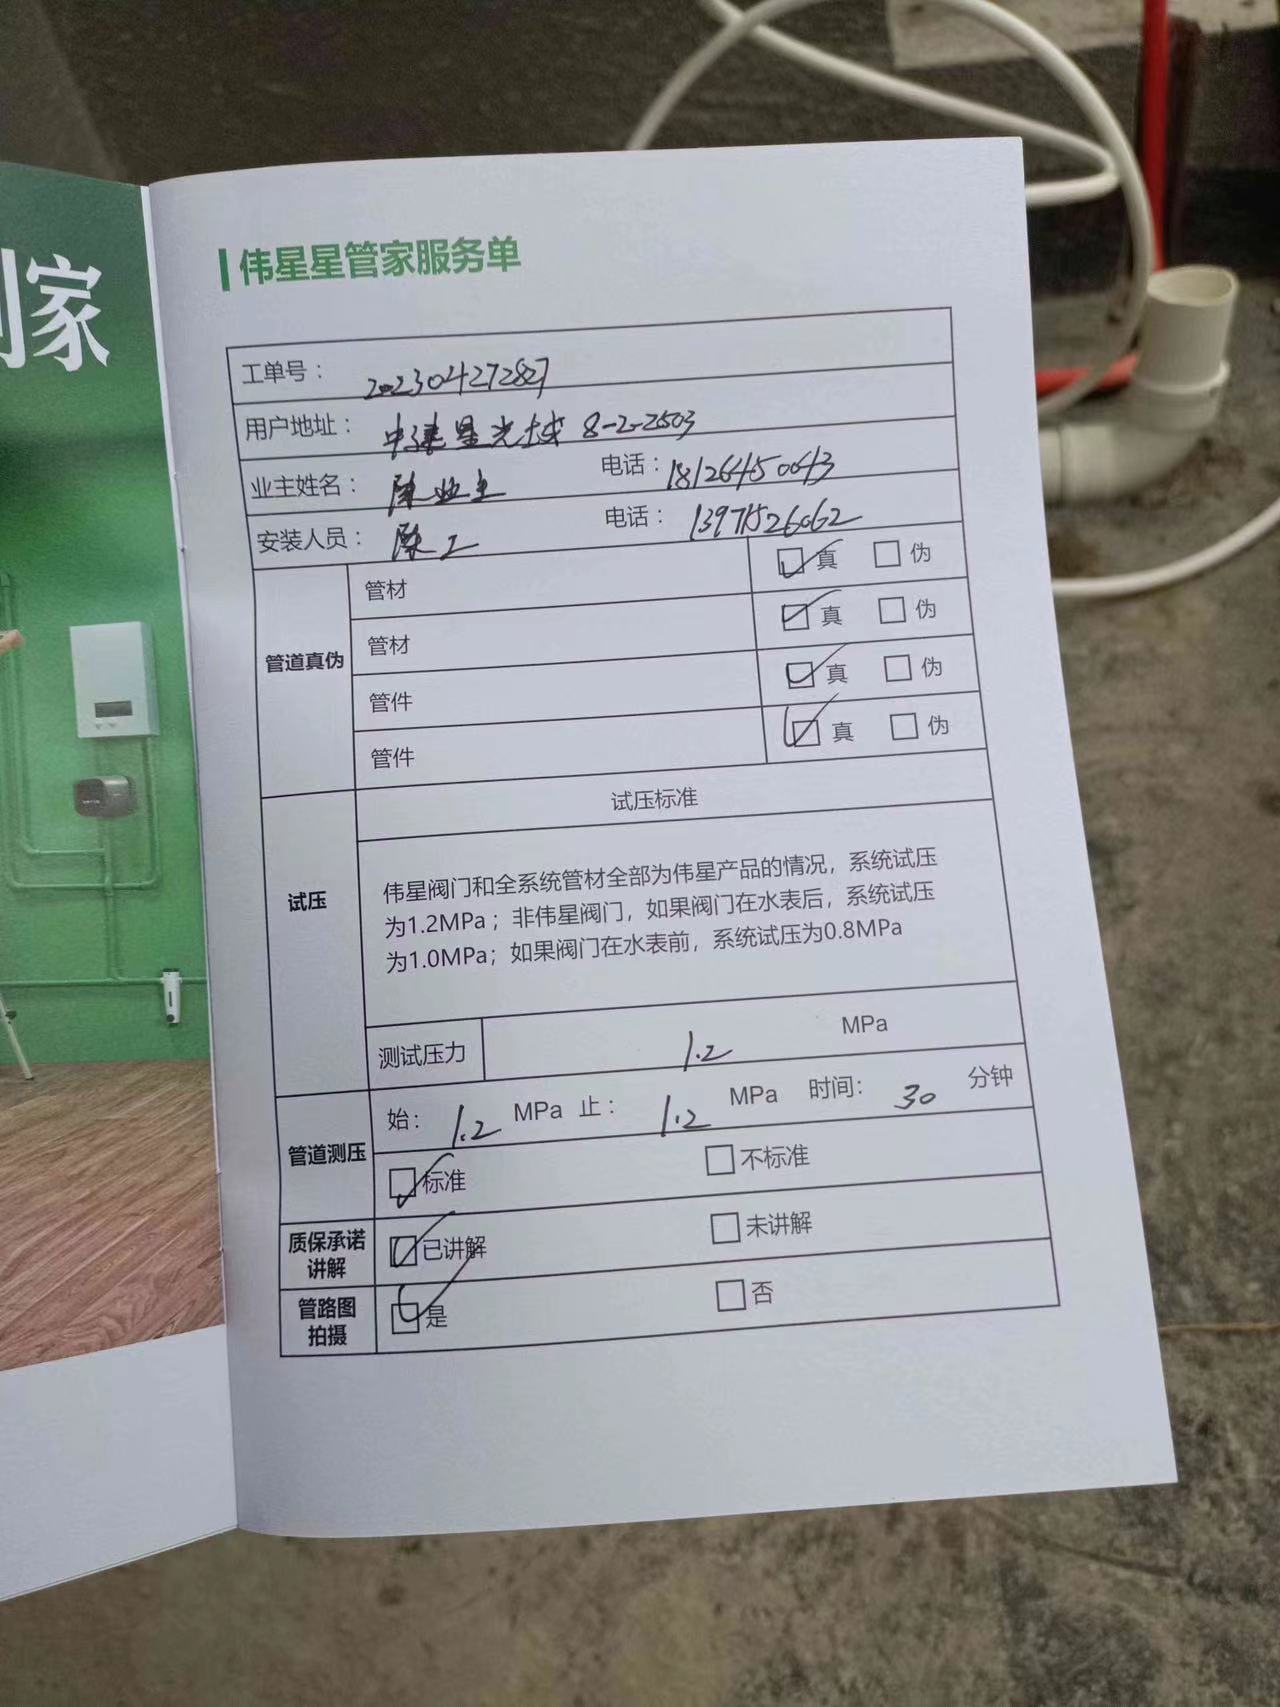 到家
伟星星管家服务单
工单号： 202304272827
用户地址： 中建星光城 8-2-2503
业主姓名： 陈业主 电话：18126450643
安装人员： 陈工 电话： 13971526062
管道真伪
管材 真 伪
管材 真 伪
管件 真 伪
管件 真 伪
试压
试压标准
伟星阀门和全系统管材全部为伟星产品的情况，系统试压
为1.2MPa；非伟星阀门，如果阀门在水表后，系统试压
为1.0MPa；如果阀门在水表前，系统试压为0.8MPa
测试压力 1.2 MPa
管道测压
始： 1.2 MPa 止： 1.2 MPa 时间： 30 分钟
标准 不标准
质保承诺
讲解
已讲解 未讲解
管路图
拍摄
是 否